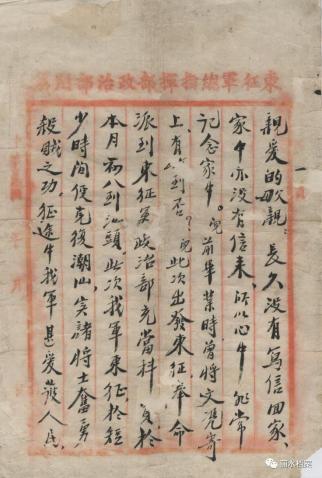 東征軍總指揮部政治部用
一
親愛的母親:長久沒有寫信回家、
家中亦沒有信来、所以心中非常
記念家中。兒前畢業時曾將文凭寄
上、有收到否?兒此次出發東征奉命
派到東征軍政治部充當科員於
本月初八到汕頭此次我軍東征於短
少時間便克復潮汕、实諸將士奮勇
殺賊之功。征途中我軍甚愛護人民、
丽水档案